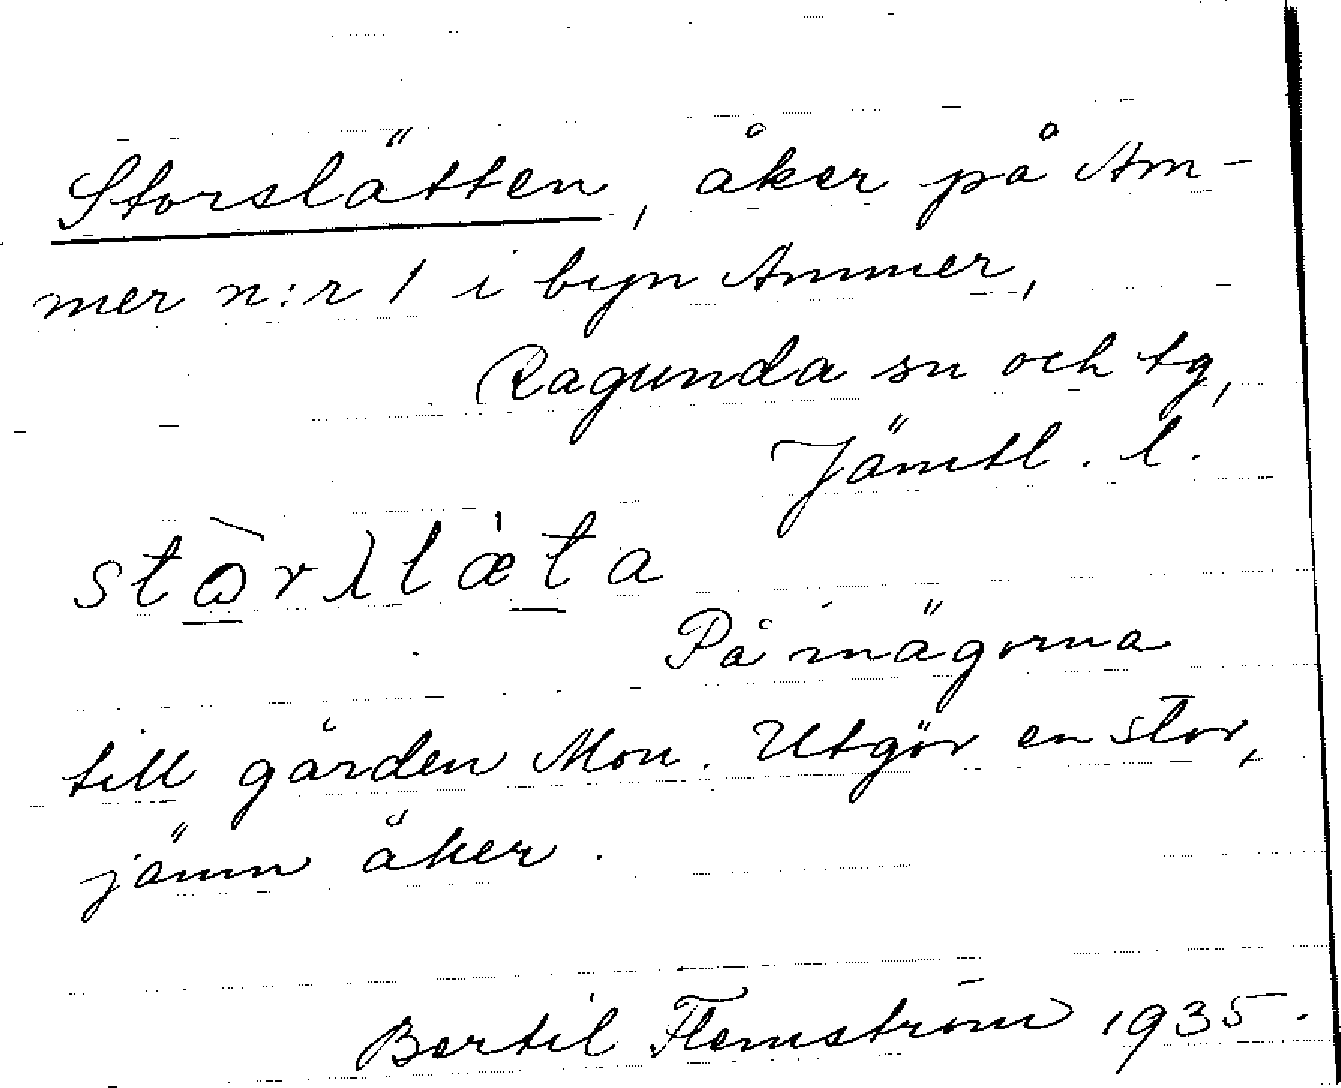 Storslätten, åker på Am-
mer n:r 1 i byn Ammer,
Ragunda sn och tg,
Jämtl. l.
På inägorna
till gården Mon. Utgör en stor,
jämn åker.
Bertil Flemström 1935.